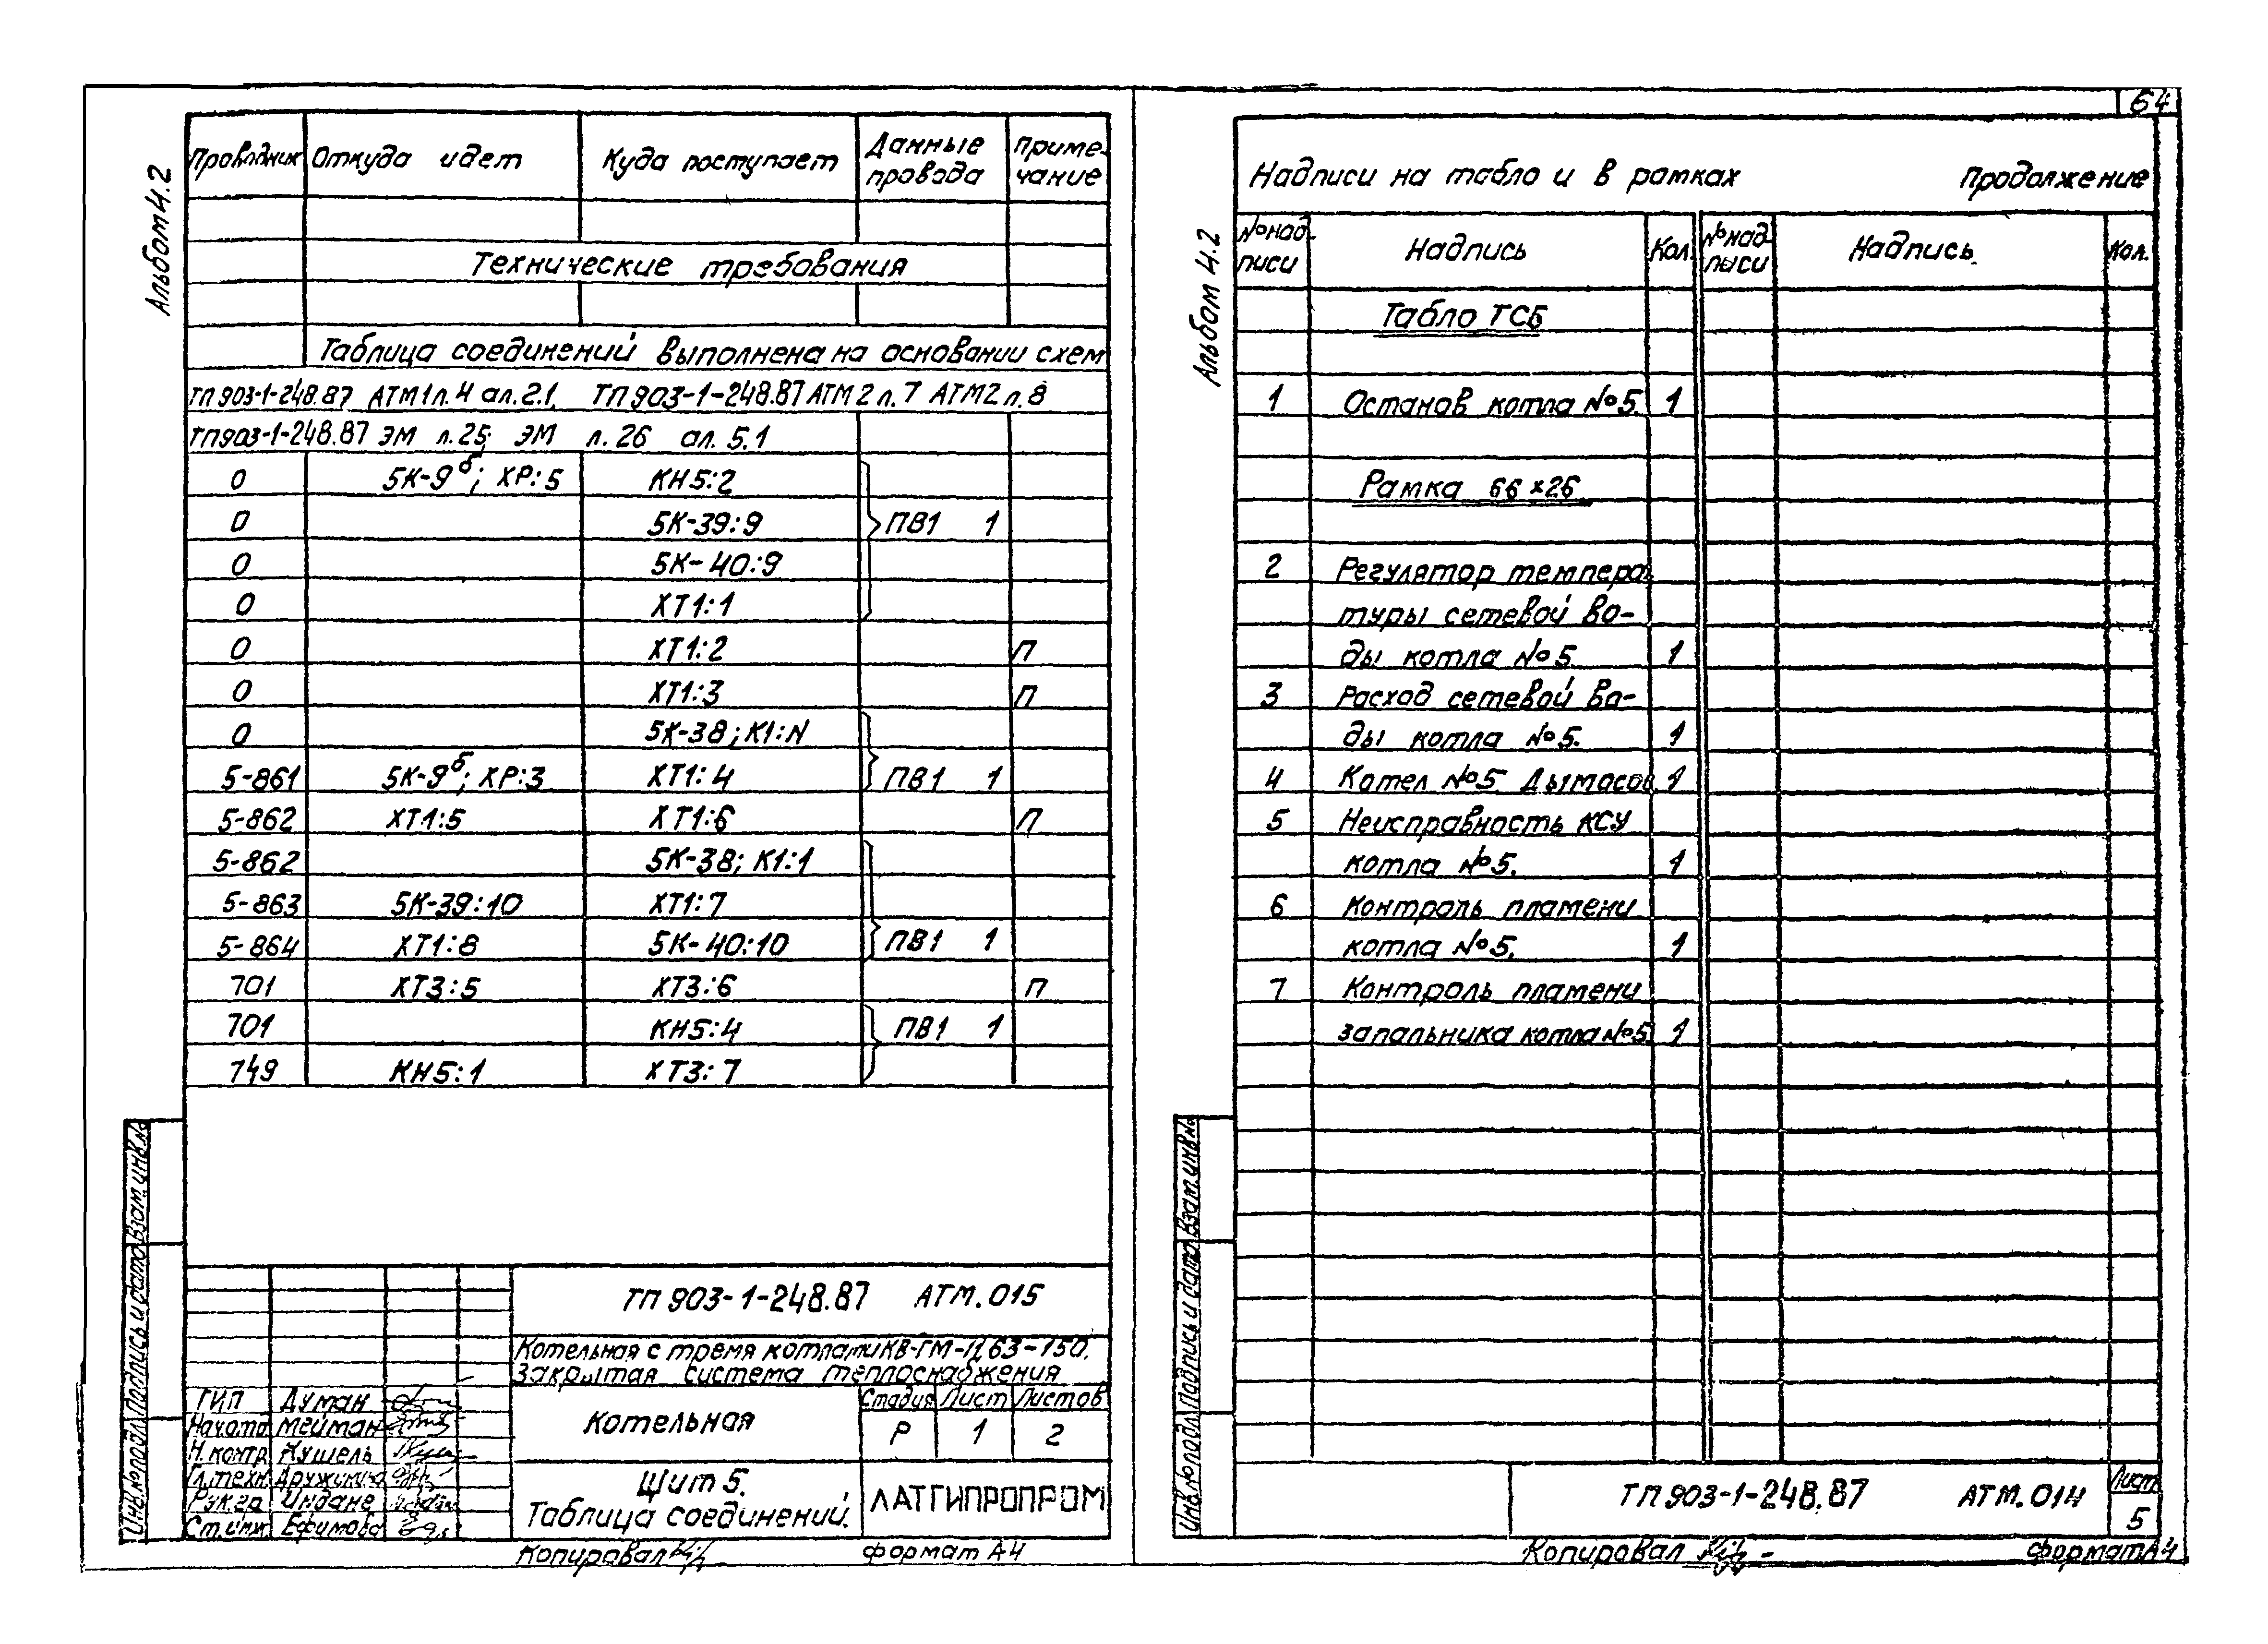 Альбом 4.2
Проводник Откуда идет Куда поступает Данные провода Приме-чание
Технические требования
Таблица соединений выполнена на основании схем
ТП 903-1-248.87 АТМ1 л.4 ал.2.1. ТП 903-1-248.87 АТМ2 л.7 АТМ2 л.8
ТП903-1-248.87 ЭМ л.25; ЭМ л.26 ал. 5.1
0 5К-9б; ХР:5 КН5:2
0 5К-39:9 ПВ1 1
0 5К-40:9
0 ХТ1:1
0 ХТ1:2 П
0 ХТ1:3 П
0 5К-38; К1:N
5-861 5К-9б; ХР:3 ХТ1:4 ПВ1 1
5-862 ХТ1:5 ХТ1:6 П
5-862 5К-38; К1:1
5-863 5К-39:10 ХТ1:7
5-864 ХТ1:8 5К-40:10 ПВ1 1
701 ХТ3:5 ХТ3:6 П
701 КН5:4 ПВ1 1
749 КН5:1 ХТ3:7
ТП 903-1-248.87 АТМ.015
Котельная с тремя котлами КВ-ГМ-11,63-150.
Закрытая система теплоснабжения
ГИП Думан
Нач.отд. Мейман
Н.контр. Кушель
Гл.техн.
Рук.гр. Индане
Ст.инж. Ефимова
Котельная
Стадия Лист Листов
Р 1 2
Щит 5.
Таблица соединений.
ЛАТГИПРОПРОМ
Копировал
формат А4
Инв.№подл. Подпись и дата Взам.инв.№
64
Альбом 4.2
Надписи на табло и в рамках Продолжение
№ над-писи Надпись Кол. № над-писи Надпись Кол.
Табло ТСБ
1 Останов котла №5 1
Рамка 66×26
2 Регулятор темпера-
туры сетевой во-
ды котла №5 1
3 Расход сетевой во-
ды котла №5. 1
4 Котел №5. Дымосос 1
5 Неисправность КСУ
котла №5. 1
6 Контроль пламени
котла №5. 1
7 Контроль пламени
запальника котла №5 1
ТП 903-1-248.87 АТМ.014
Лист
5
Копировал
формат А4
Инв.№подл. Подпись и дата Взам.инв.№